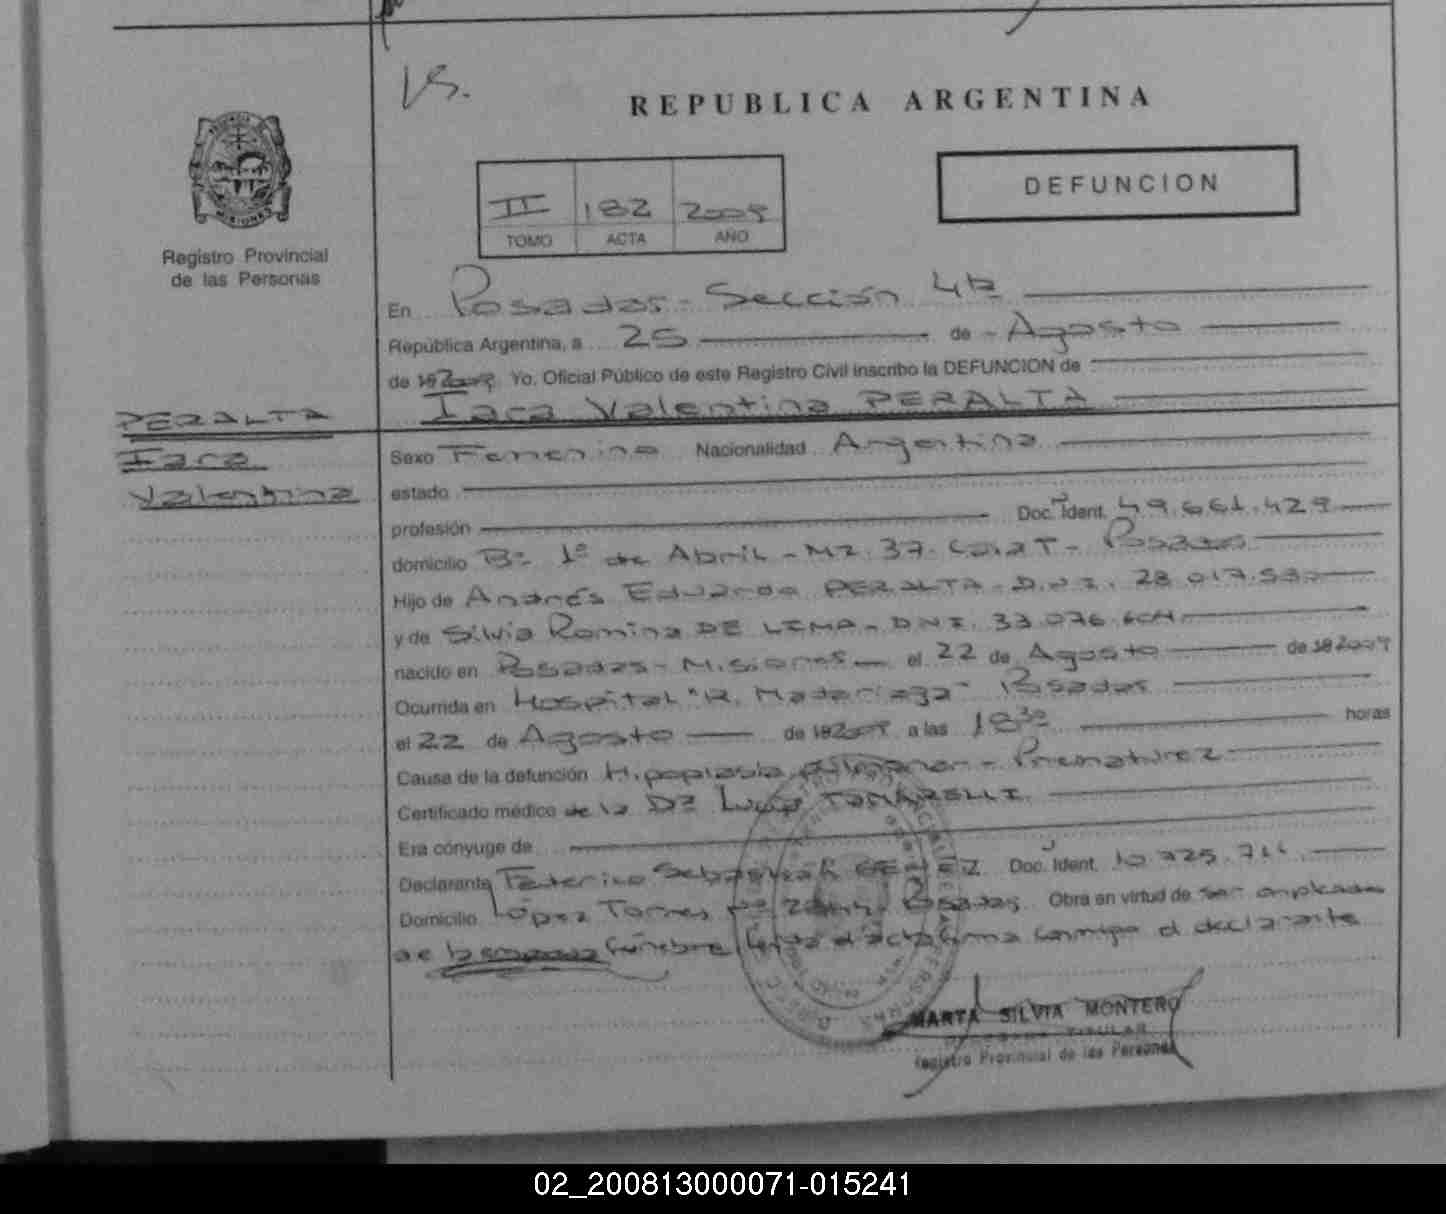 Vs.
REPUBLICA ARGENTINA
DEFUNCION
II 182 2009
TOMO ACTA AÑO
Registro Provincial
de las Personas
En Posadas - Sección 4ta
República Argentina, a 25 de Agosto
de 192009 Yo, Oficial Público de este Registro Civil inscribo la DEFUNCION de
Iara Valentina PERALTA
PERALTA
Iara
Valentina
Sexo Femenino Nacionalidad Argentina
estado
profesión Doc. Ident. 49.661.429
domicilio Bº 1º de Abril - MZ. 37. Casa T - Posadas
Hijo de Andrés Eduardo PERALTA - D.N.I. 28.017.530
y de Silvia Romina DE LIMA - DNI. 33.076.604
nacido en Posadas - Misiones el 22 de Agosto de 192009
Ocurrida en Hospital "R. Madariaga" Posadas
el 22 de Agosto de 192009 a las 18³⁰ horas
Causa de la defunción Hipoplasia pulmonar - Prematurez
Certificado médico de la Dra Lucia TOMARELLI
Era cónyuge de
Declarante Federico Sebastián GEMEZ Doc. Ident.
Domicilio López Torres nº Posadas Obra en virtud de ser empleado
de la empresa fúnebre Leída el acta firma conmigo el declarante
MARTA SILVIA MONTERO
TITULAR
Registro Provincial de las Personas
02_200813000071-015241